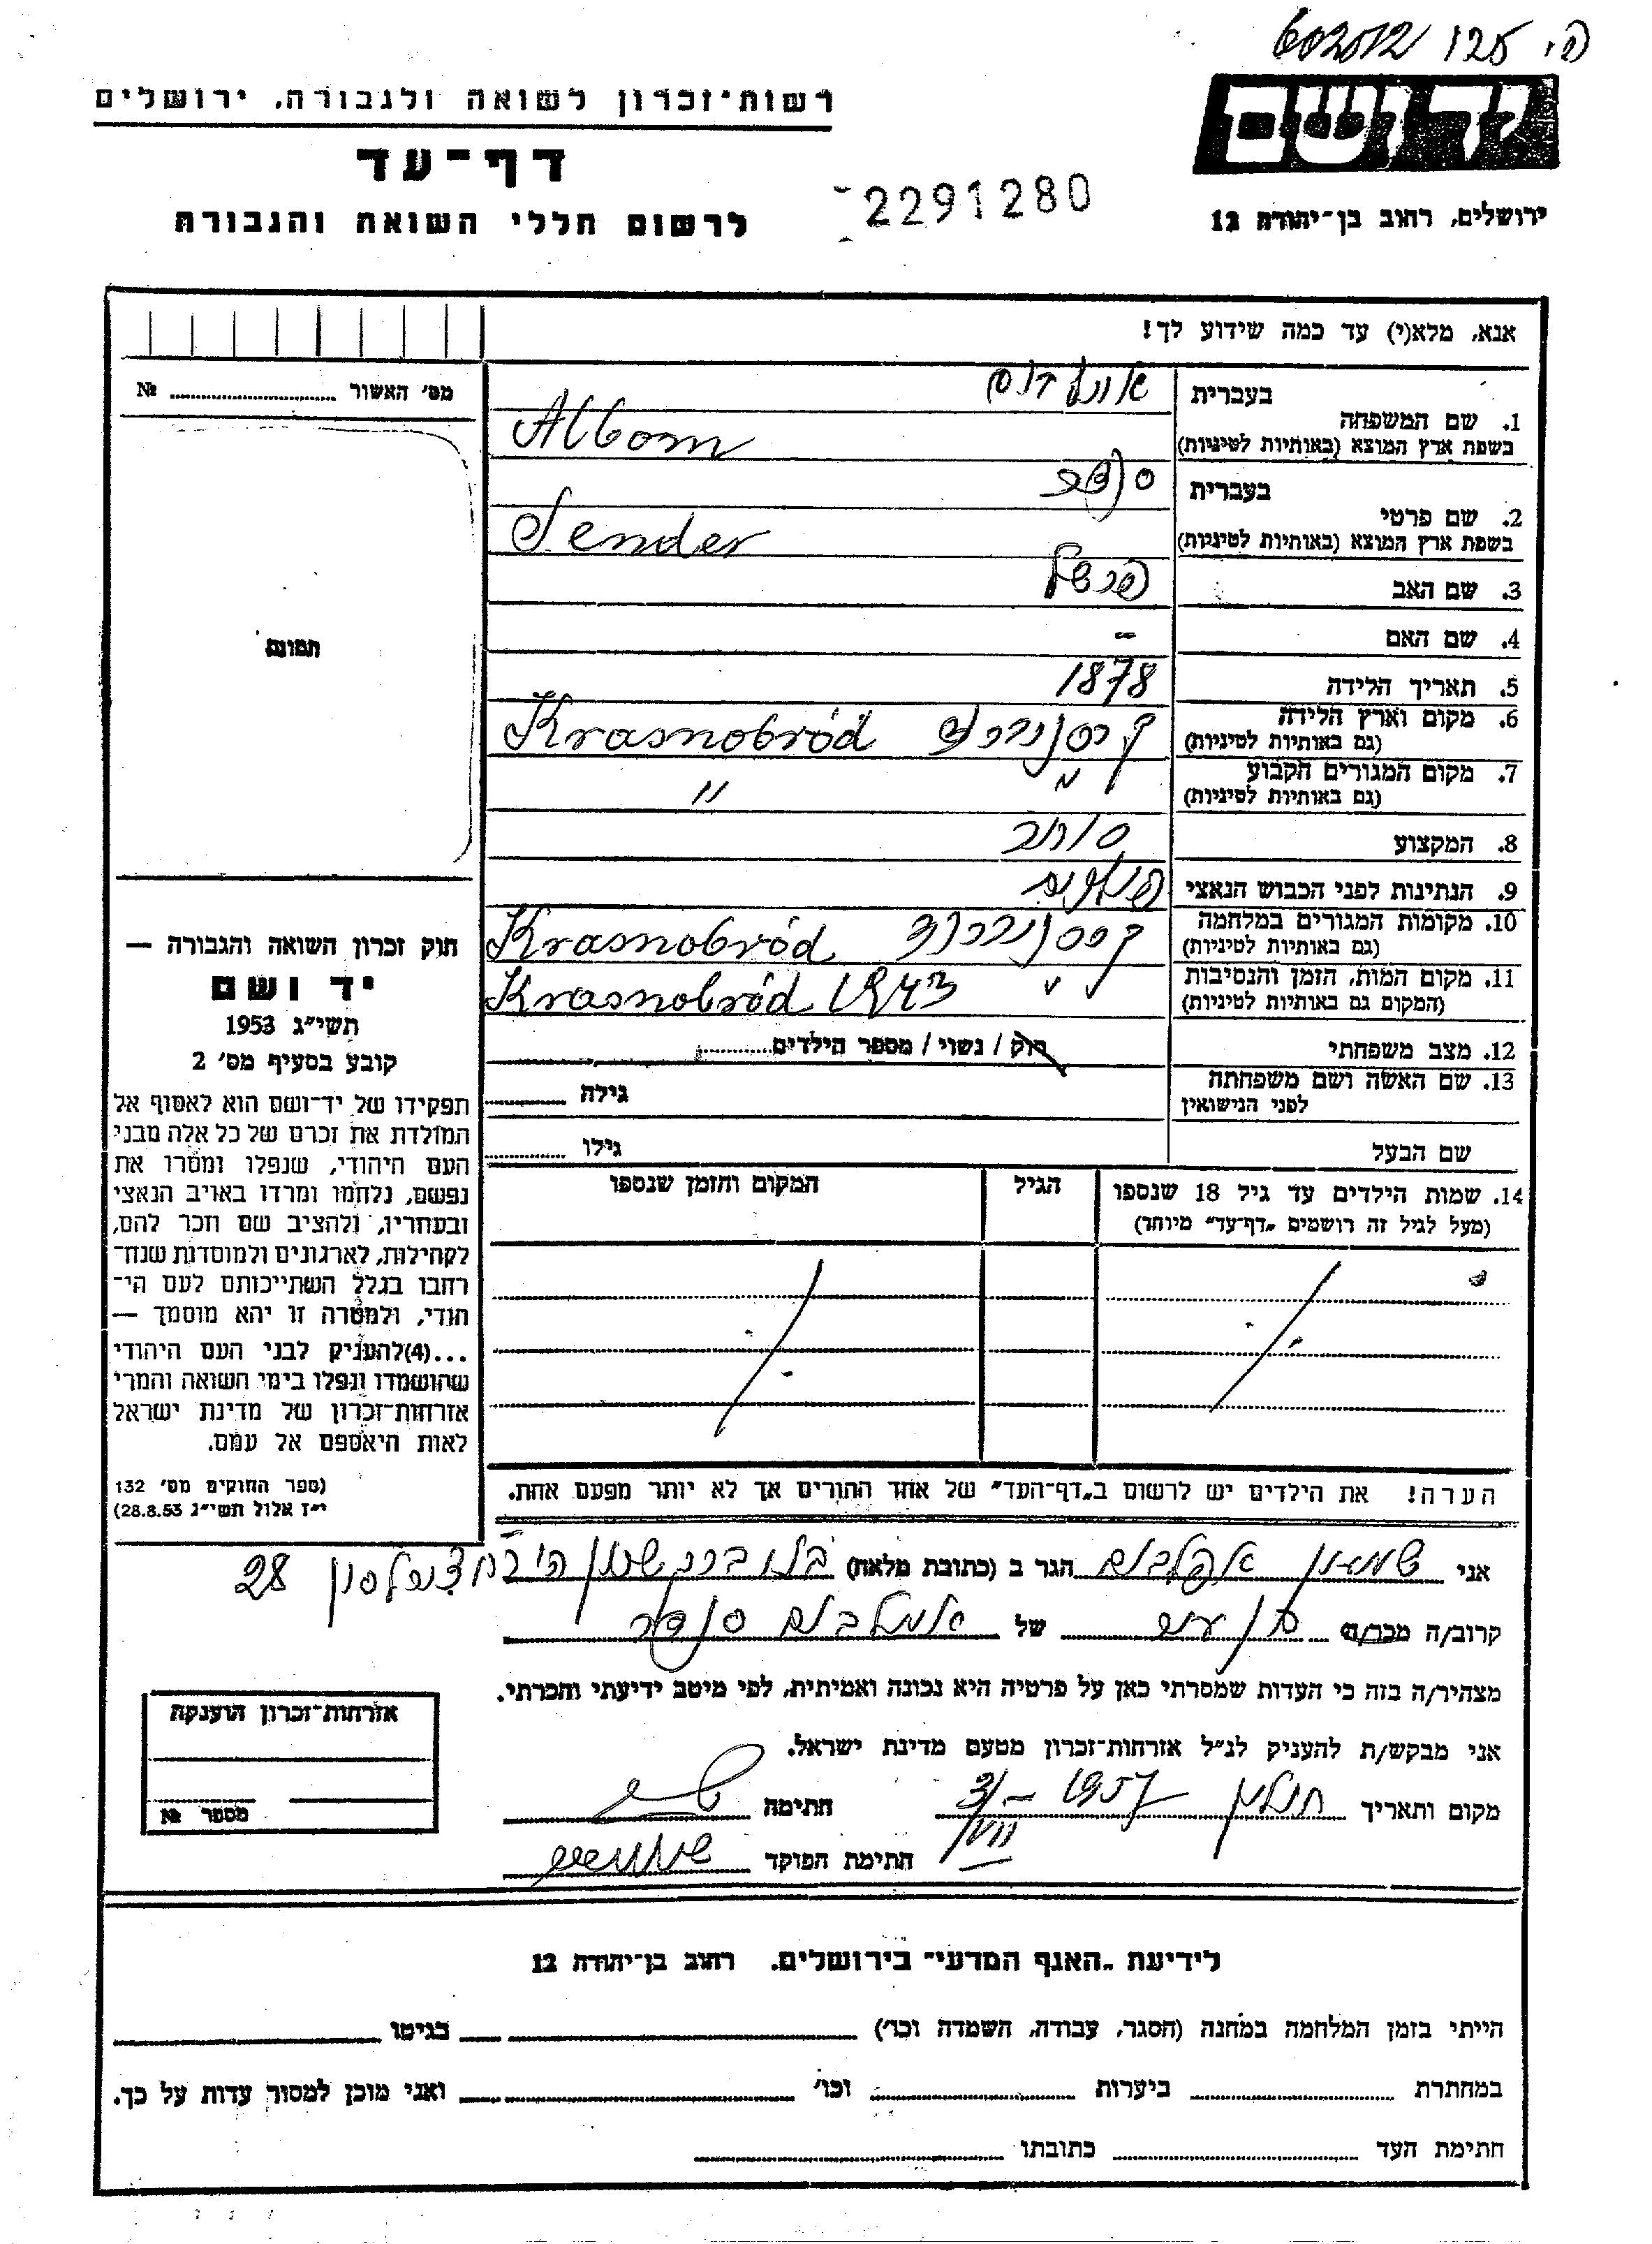 602012 125 .פי
יד ושם
ירושלים, רחוב בן־יהודה 12
רשות־זכרון לשואה ולגבורה, ירושלים
דף־עד
לרשום חללי השואה והגבורה
2291280
אנא, מלא(י) עד כמה שידוע לך!
מס׳ האשור ........ №
תמונה
1. שם המשפחה בעברית
בשפת ארץ המוצא (באותיות לטיניות) Albom
2. שם פרטי בעברית סנדר
בשפת ארץ המוצא (באותיות לטיניות) Sender
3. שם האב הרשל
4. שם האם -
5. תאריך הלידה 1878
6. מקום וארץ הלידה קרסנוברוד Krasnobród
(גם באותיות לטיניות)
7. מקום המגורים הקבוע " "
(גם באותיות לטיניות)
8. המקצוע סוחר
9. הנתינות לפני הכבוש הנאצי פולנית
10. מקומות המגורים במלחמה קרסנוברוד Krasnobród
(גם באותיות לטיניות)
11. מקום המות, הזמן והנסיבות " Krasnobród 1943
(המקום גם באותיות לטיניות)
12. מצב משפחתי רוק / נשוי / מספר הילדים........
13. שם האשה ושם משפחתה גילה ........
לפני הנישואין
שם הבעל גילו ........
14. שמות הילדים עד גיל 18 שנספו הגיל המקום והזמן שנספו
(מעל לגיל זה רושמים „דף־עד״ מיוחד)
הערה! את הילדים יש לרשום ב„דף־העד״ של אחד ההורים אך לא יותר מפעם אחת.
חוק זכרון השואה והגבורה —
יד ושם
תשי״ג 1953
קובע בסעיף מס׳ 2
תפקידו של יד־ושם הוא לאסוף אל
המולדת את זכרם של כל אלה מבני
העם היהודי, שנפלו ומסרו את
נפשם, נלחמו ומרדו באויב הנאצי
ובעוזריו, ולהציב שם וזכר להם,
לקהילות, לארגונים ולמוסדות שנח־
רחבו בגלל השתייכותם לעם הי־
הודי, ולמטרה זו יהא מוסמך —
...(4)להעניק לבני העם היהודי
שהושמדו ונפלו בימי השואה והמרי
אזרחות־זכרון של מדינת ישראל
לאות היאספם אל עמם.
(ספר החוקים מס׳ 132
י״ז אלול תשי״ג 28.8.53)
אני שמעון אלבום הגר ב (כתובת מלאה) 28
קרוב/ה מכר/ה בן של אלבום סנדר
מצהיר/ה בזה כי העדות שמסרתי כאן על פרטיה היא נכונה ואמיתית, לפי מיטב ידיעתי והכרתי.
אני מבקש/ת להעניק לנ״ל אזרחות־זכרון מטעם מדינת ישראל.
מקום ותאריך חולון 1957 - 3/VII חתימה
חתימת הפוקד
אזרחות־זכרון הוענקה
מספר №
לידיעת „האגף המדעי״ בירושלים, רחוב בן־יהודה 12
הייתי בזמן המלחמה במחנה (הסגר, עבודה, השמדה וכו׳) ________ בגיטו ________
במחתרת ........ ביערות ........ וכו׳ ________ ואני מוכן למסור עדות על כך.
חתימת העד ........ כתובתו ........